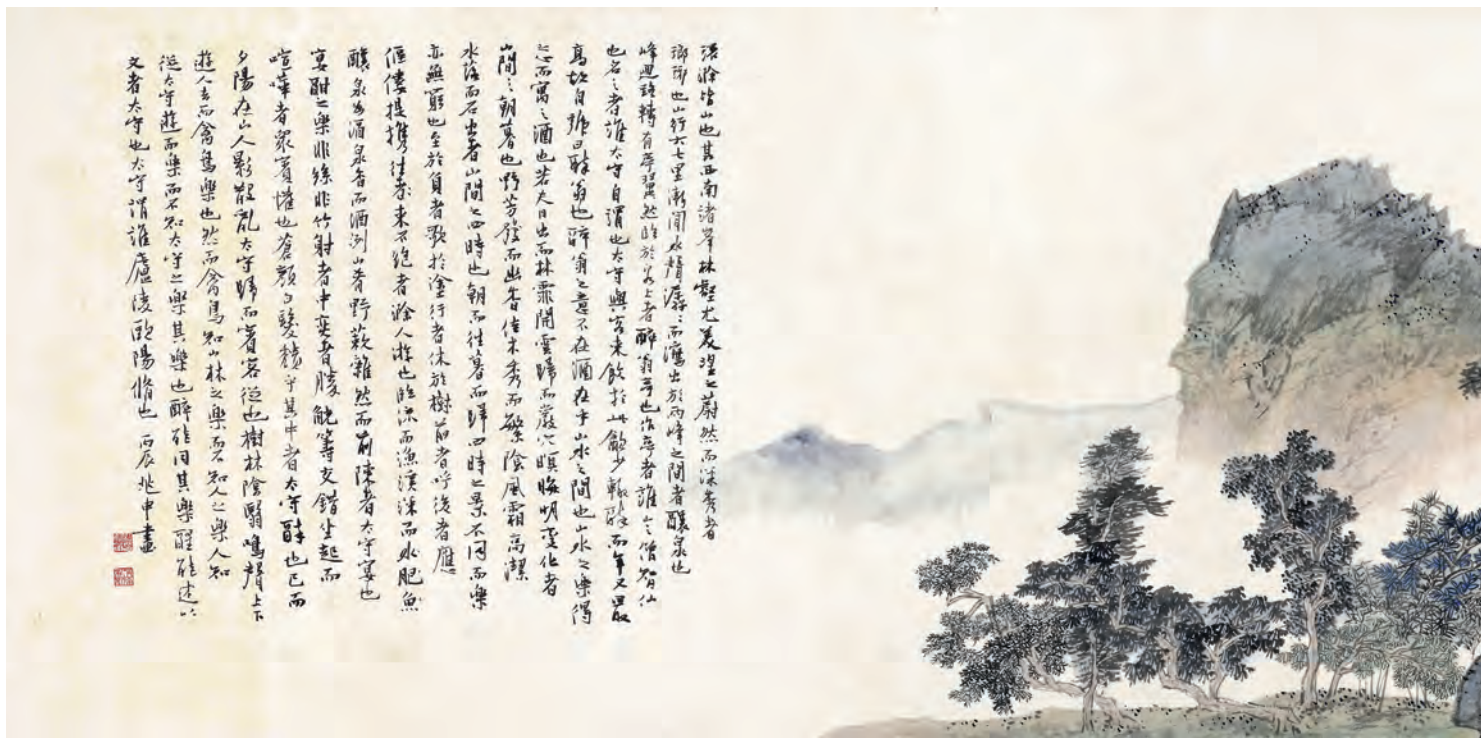 環滁皆山也其西南諸峯林壑尤美望之蔚然而深秀者
瑯琊也山行六七里漸聞水聲潺〻而瀉出於兩峰之間者釀泉也
峰迴路轉有亭翼然臨於泉上者醉翁亭也作亭者誰山之僧智仙
也名之者誰太守自謂也太守與客來飲於此飲少輒醉而年又最
高故自號曰醉翁也醉翁之意不在酒在乎山水之間也山水之樂得
心而寓之酒也若夫日出而林霏開雲歸而巖穴暝晦明變化者
山間之朝暮也野芳發而幽香佳木秀而繁陰風霜高潔
水落而石出者山間之四時也朝而往暮而歸四時之景不同而樂
亦無窮也至於負者歌於塗行者休於樹前者呼後者應
傴僂提攜往來不絕者滁人遊也臨溪而漁溪深而水肥魚
釀泉為酒泉香而酒洌山肴野蔌雜然而前陳者太守宴也
宴酣之樂非絲非竹射者中奕者勝觥籌交錯坐起而
喧嘩者眾賓懽也蒼顏白髮頹乎其中者太守醉也已而
夕陽在山人影散亂太守歸而賓客從也樹林陰翳鳴聲上下
遊人去而禽鳥樂也然而禽鳥知山林之樂而不知人之樂人知
從太守遊而樂而不知太守之樂其樂也醉能同其樂醒能述以
文者太守也太守謂誰廬陵歐陽脩也 丙辰兆申畫